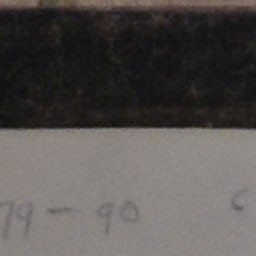 79 - 90 c